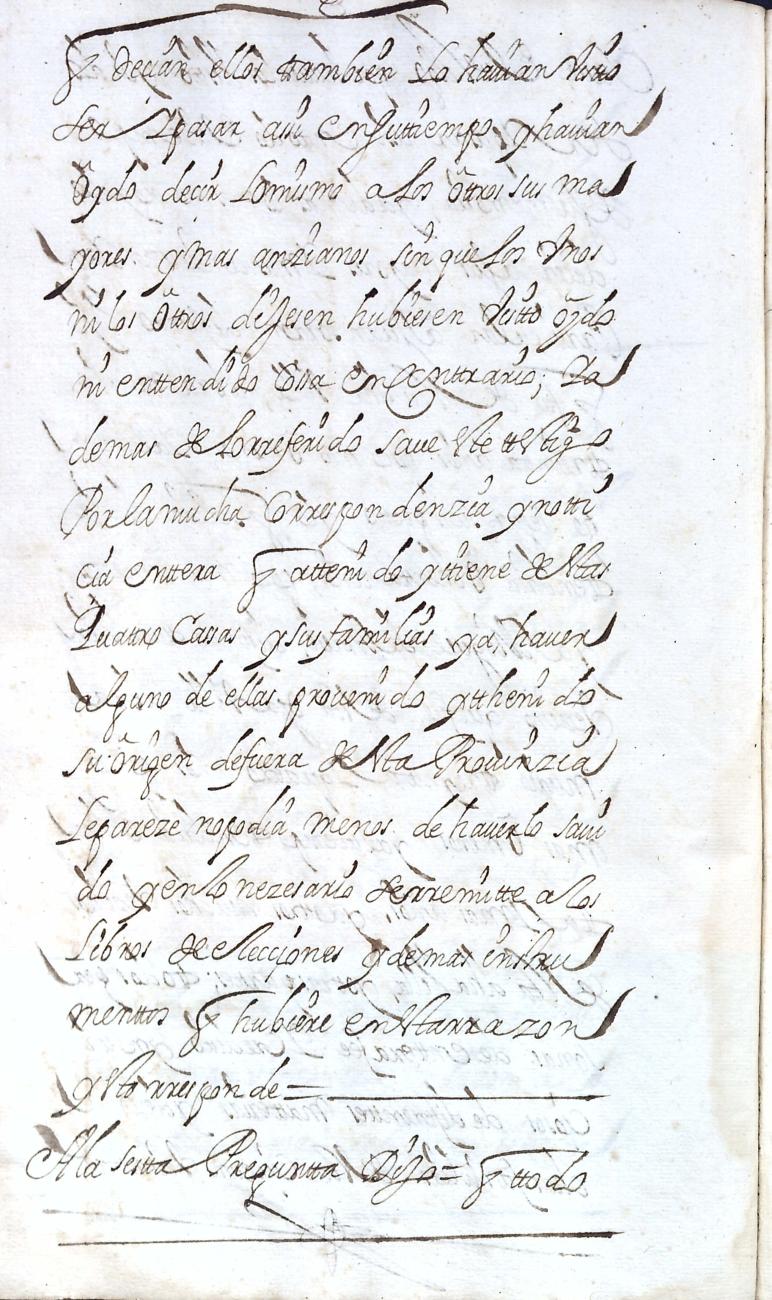 q̃ decian ellos ttambien lo havian visto
ser y pasar assi en su ttiempo y havian
oydo decir lo mismo a los ottros sus ma
yores y mas anzianos sin que los vnos
ni los ottros dijesen hubiesen visto oydo
ni enttendido cossa en conttrario; y a
demas de lo rreferido save este ttestigo
Por la mucha correspondenzia y notti
cia enttera q̃ a ttenido y tiene de estas
quatro Cassas y sus familias y a haver
alguno de ellas provenido y tthenido
su origen de fuera de esta Provinzia
le pareze no podia menos de haverlo savi
do y en lo nezesario se rremitte a los
Libros de elecciones y demas instru
menttos q̃ hubiere en esta rrazon
y esto rresponde =
A la sestta Preguntta Dijo = q̃ ttodo